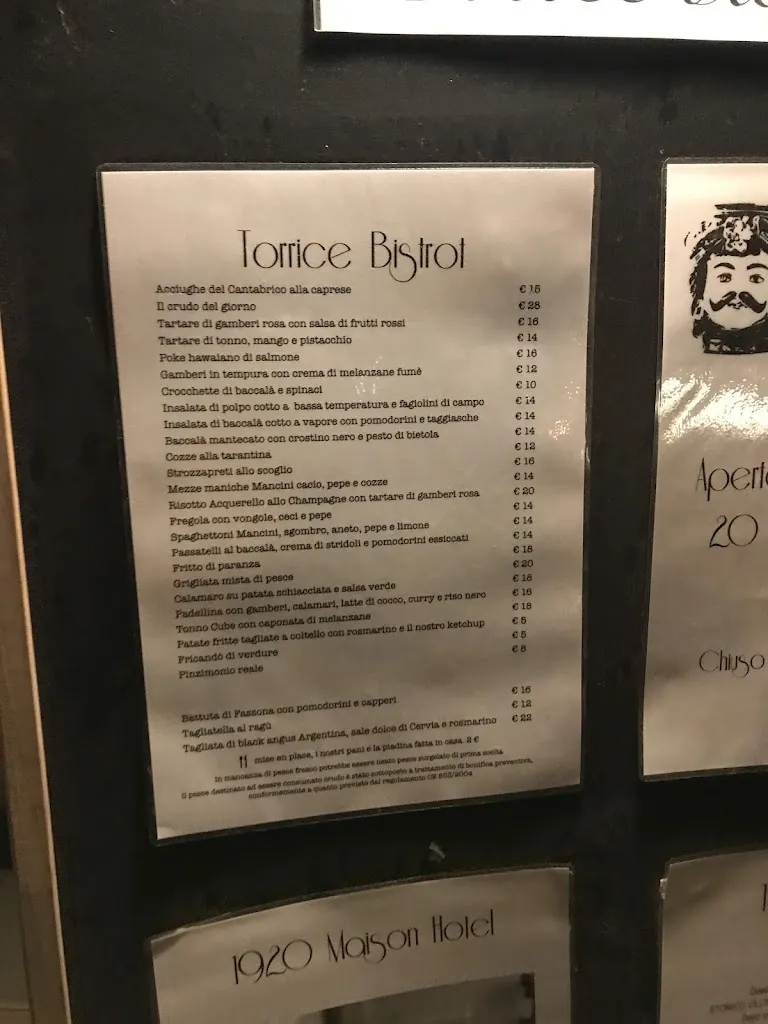 Torrice Bistrot
Acciughe del Cantabrico alla caprese € 15
Il crudo del giorno € 28
Tartare di gamberi rosa con salsa di frutti rossi € 16
Tartare di tonno, mango e pistacchio € 14
Poke hawaiano di salmone € 16
Gamberi in tempura con crema di melanzane fumè € 12
Crocchette di baccalà e spinaci € 10
Insalata di polpo cotto a bassa temperatura e fagiolini di campo € 14
Insalata di baccalà cotto a vapore con pomodorini e taggiasche € 14
Baccalà mantecato con crostino nero e pesto di bietola € 14
Cozze alla tarantina € 12
Strozzapreti allo scoglio € 16
Mezze maniche Mancini cacio, pepe e cozze € 14
Risotto Acquerello allo Champagne con tartare di gamberi rosa € 20
Fregola con vongole, ceci e pepe € 14
Spaghettoni Mancini, sgombro, aneto, pepe e limone € 14
Passatelli al baccalà, crema di stridoli e pomodorini essiccati € 14
Fritto di paranza € 18
Grigliata mista di pesce € 20
Calamaro su patata schiacciata e salsa verde € 16
Padellina con gamberi, calamari, latte di cocco, curry e riso nero € 16
Tonno Cube con caponata di melanzane € 18
Patate fritte tagliate a coltello con rosmarino e il nostro ketchup € 5
Fricandò di verdure € 5
Pinzimonio reale € 5
Battuta di Fassona con pomodorini e capperi € 16
Tagliatella al ragù € 12
Tagliata di black angus Argentina, sale dolce di Cervia e rosmarino € 22
mise en place, i nostri pani e la piadina fatta in casa 2 €
In mancanza di pesce fresco potrebbe essere usato pesce surgelato di prima scelta
Il pesce destinato ad essere consumato crudo è stato sottoposto a trattamento di bonifica preventiva,
conformemente a quanto previsto dal regolamento CE 853/2004
20
Chiuso
1920 Maison Hotel